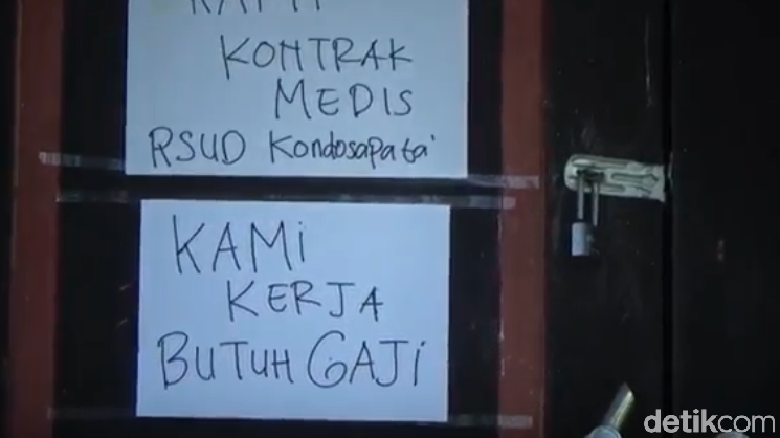 KONTRAK
MEDIS
RSUD Kondosapata'
KAMi
KERJA
BUTUH GAJi
detikcom